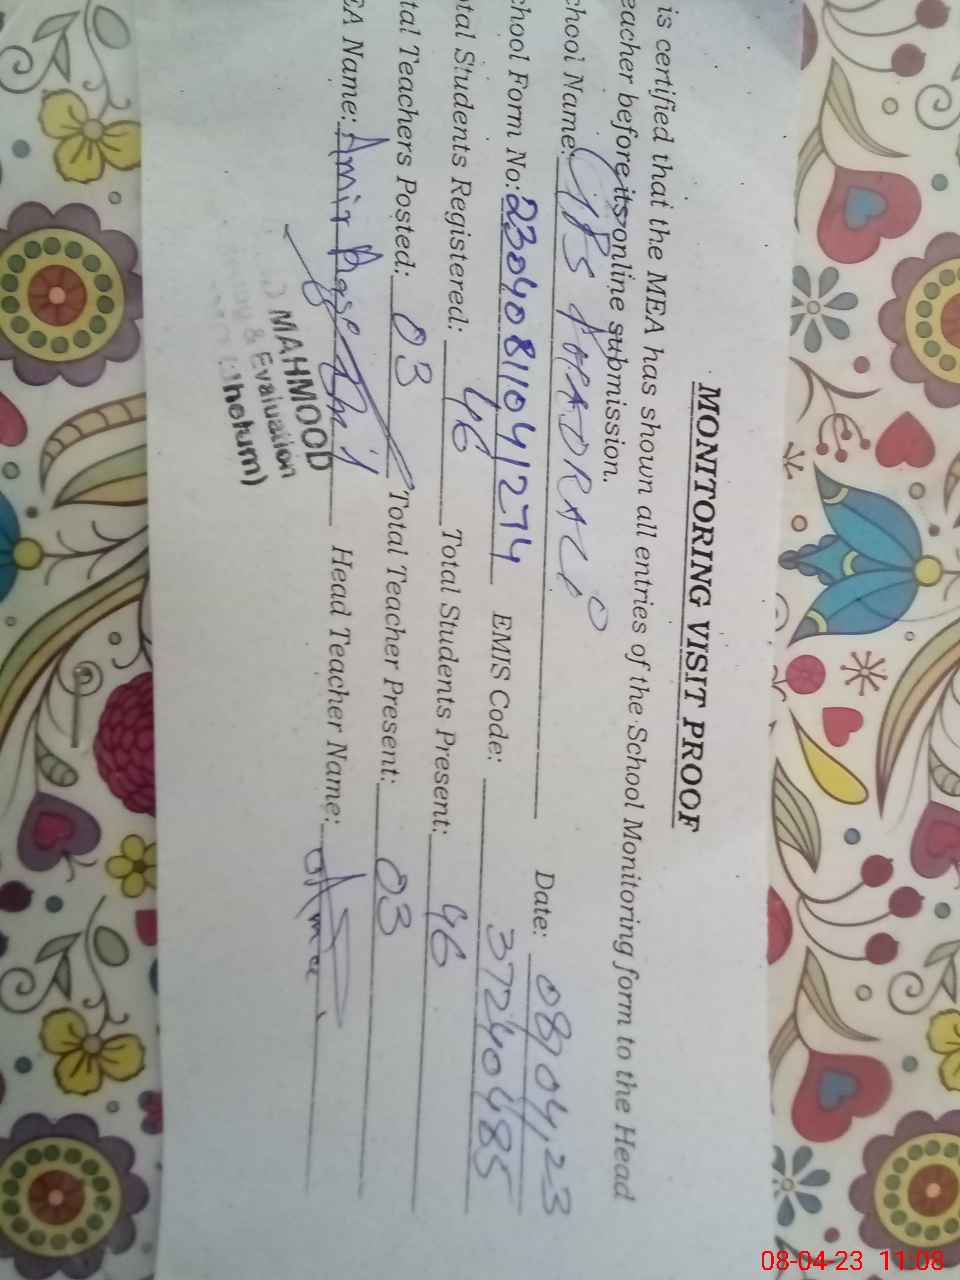 MONITORING VISIT PROOF
is certified that the MEA has shown all entries of the School Monitoring form to the Head
eacher before its online submission.
chool Name: Date: 08/04/23
chool Form No: 23040811041274 EMIS Code: 37240485
tal Students Registered: 46 Total Students Present: 46
tal Teachers Posted: 03 Total Teacher Present: 03
EA Name: Amir Head Teacher Name:
MAHMOOD
& Evaluation
helum)
08-04-23 11:08